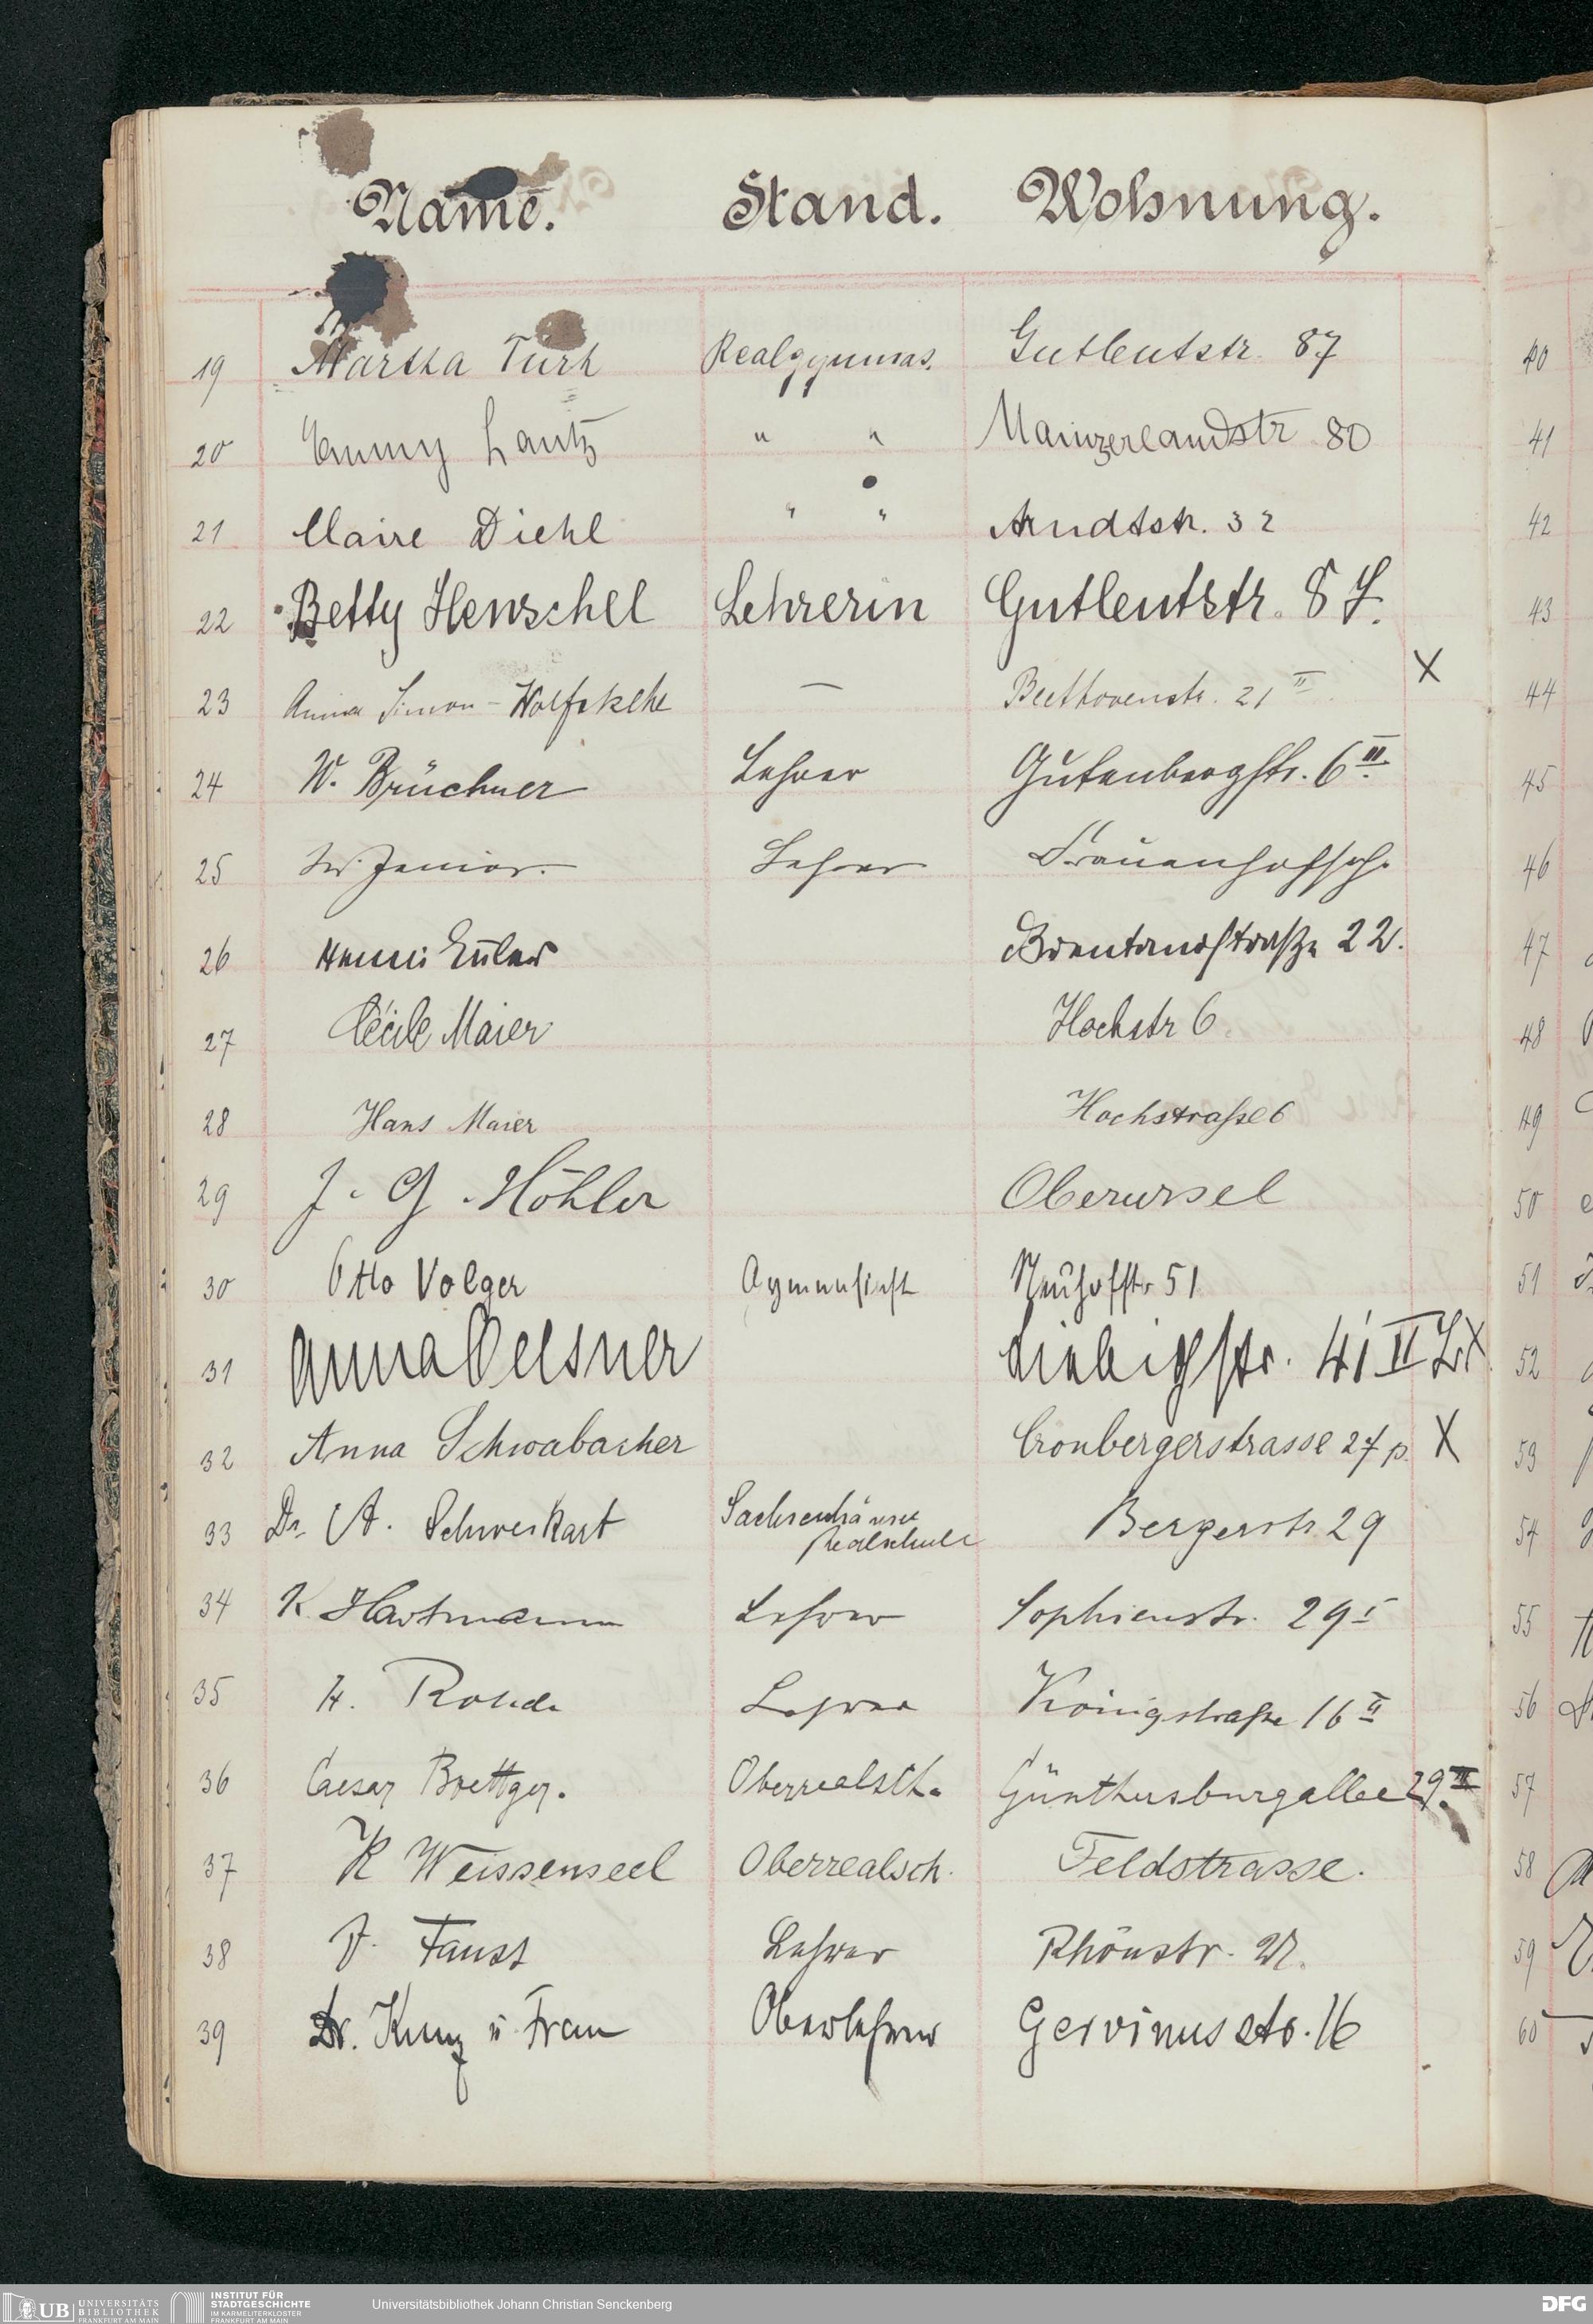 Name. Stand. Wohnung.
19 Martha Türk Realgymnas. Gutleutstr. 87
20 Emmy Lautz " " Mainzerlandstr 80
21 Claire Diehl " " Arndtstr. 32
22 Betty Henschel Lehrerin Gutleutstr. 8
23 Anna Simon-Wolfskehl — Beethovenstr. 21 II X
24 W. Brüchner Lehrer Gutenbergstr. 6 III
25 Junior. Lehrer Frauenhofsch.
26 Henni Euler Brentanostraße 22.
27 Cécile Maier Hochstr 6.
28 Hans Maier Hochstraße 6
29 J. G. Höhler Oberursel
30 Otto Volger Gymnasiast Neuhofstr 51
31 Anna Oelsner Liebigstr. 41 II X
32 Anna Schwabacher Cronbergerstrasse 27 p. X
33 Dr. A. Schweikart Sachsenhäuser Bergerstr. 29
Realschule
34 K. Hartmann Lehrer Sophienstr. 29 I
35 H. Rohde Lehrer Königstraße 16 II
36 Caesar Boettger. Oberrealsch. Günthersburgallee 29. III
37 K Weissenseel Oberrealsch. Feldstrasse.
38 F. Faust Lehrer Rhönstr.
39 Dr. Kunz u Frau Oberlehrer Gervinusstr. 16
40
41
42
43
44
45
46
47
48
49
50
51
52
53
54
55
56
57
58
59
60
UB UNIVERSITÄTS
BIBLIOTHEK
FRANKFURT AM MAIN
INSTITUT FÜR
STADTGESCHICHTE
IM KARMELITERKLOSTER
FRANKFURT AM MAIN
Universitätsbibliothek Johann Christian Senckenberg
DFG